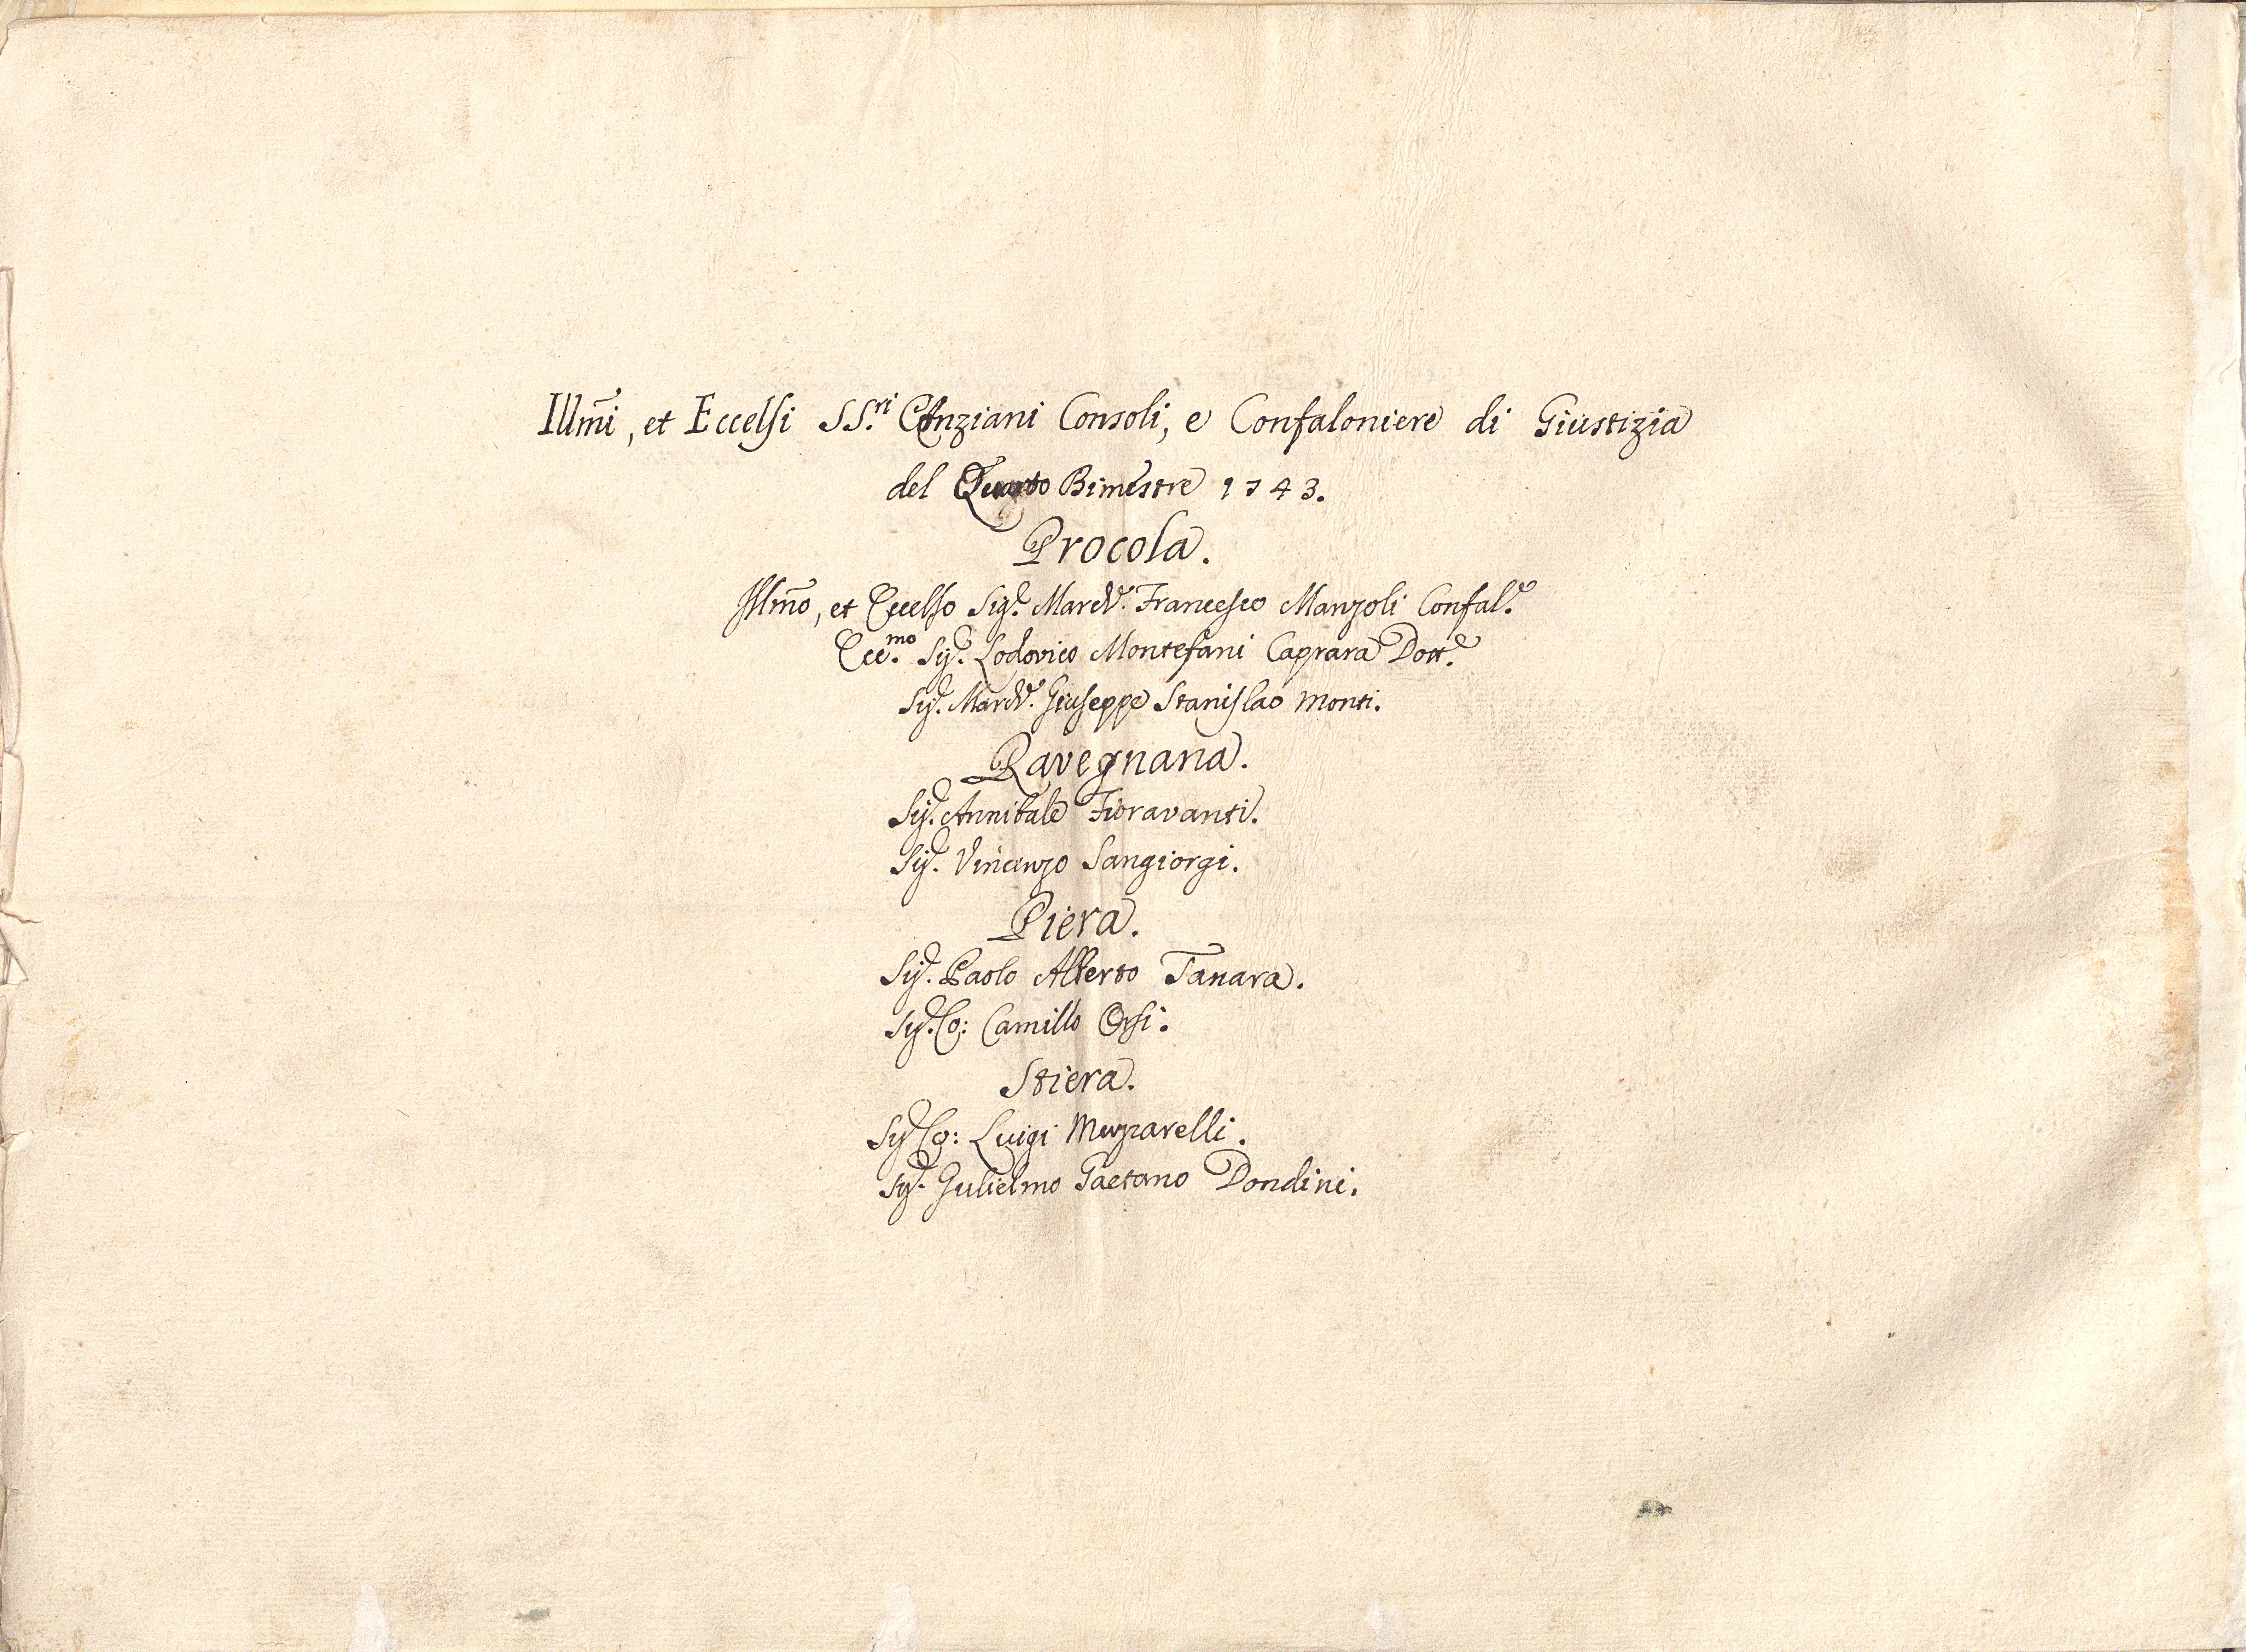 Illm̃i, et Eccelsi SS.ri Anziani Consoli, e Confaloniere di Giustizia
del Quarto Bimestre 1743.
Procola.
Illm̃o, et Eccelso Sig.e March.e Francesco Manzoli Confal.e
Ecc.mo Sig.e Lodovico Montefani Caprara Dott.e
Sig.e March.e Giuseppe Stanislao Monti.
Ravegnana.
Sig.e Annibale Fioravanti.
Sig.e Vincenzo Sangiorgi.
Piera.
Sig.e Paolo Alberto Tanara.
Sig.e Co: Camillo Orsi.
Stiera.
Sig.e Co: Luigi Muzzarelli.
Sig.e Gulielmo Gaetano Dondini.